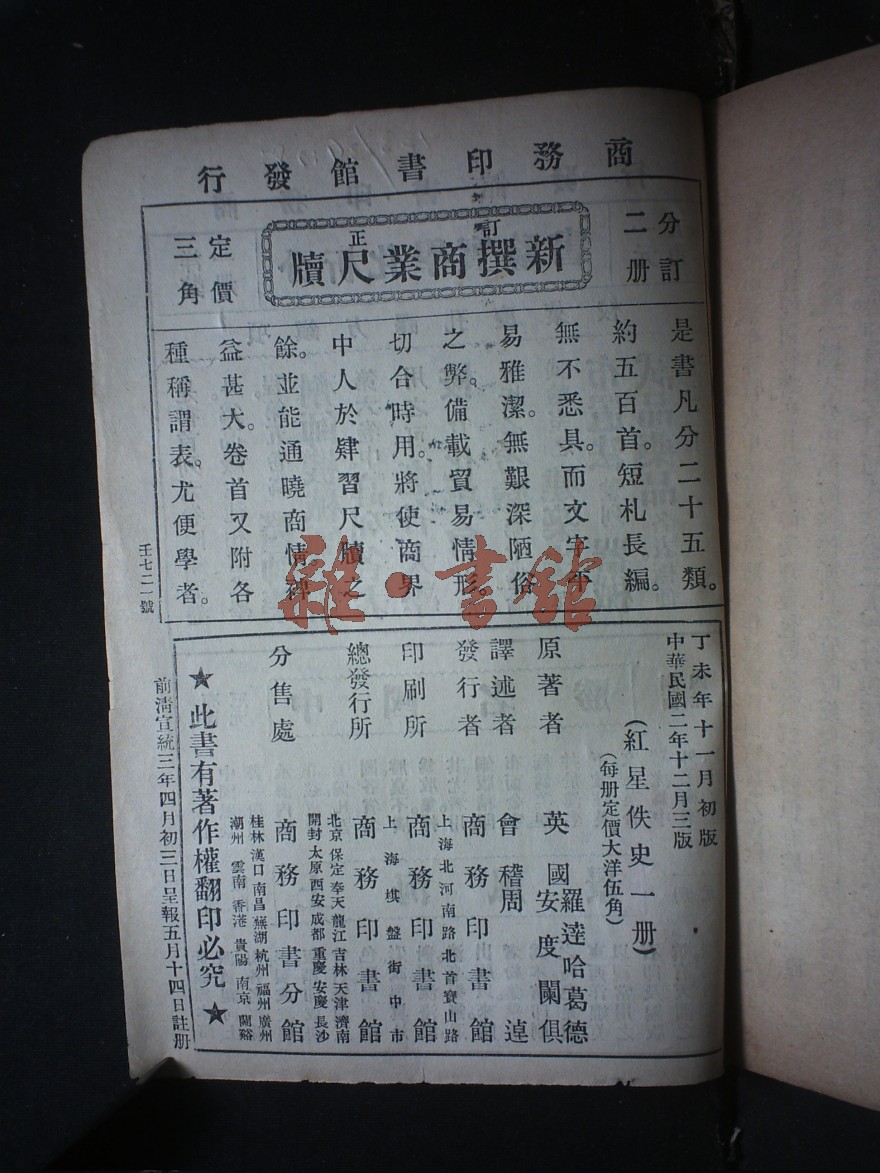 商務印書館發行
分訂二册
訂正
新撰商業尺牘
定價三角
是書凡分二十五類。
約五百首。短札長編。
無不悉具。而文字平
易雅潔。無艱深陋俗
之弊。備載貿易情形。
切合時用。將使商界
中人於肄習尺牘之
餘。並能通曉商情。裨
益甚大。卷首又附各
種稱謂表。尤便學者。
壬七二一號
丁未年十一月初版
中華民國二年十二月三版
(紅星佚史一册)
(每册定價大洋伍角)
原著者 英國羅達哈葛德
安度闌俱
譯述者 會稽周逴
發行者 商務印書館
上海北河南路北首寶山路
印刷所 商務印書館
上海棋盤街中市
總發行所 商務印書館
北京 保定 奉天 龍江 吉林 天津 濟南
開封 太原 西安 成都 重慶 安慶 長沙
分售處 商務印書分館
桂林 漢口 南昌 蕪湖 杭州 福州 廣州
潮州 雲南 香港 貴陽 南京 蘭谿
★此書有著作權翻印必究★
前清宣統三年四月初三日呈報五月十四日註册
雜·書館